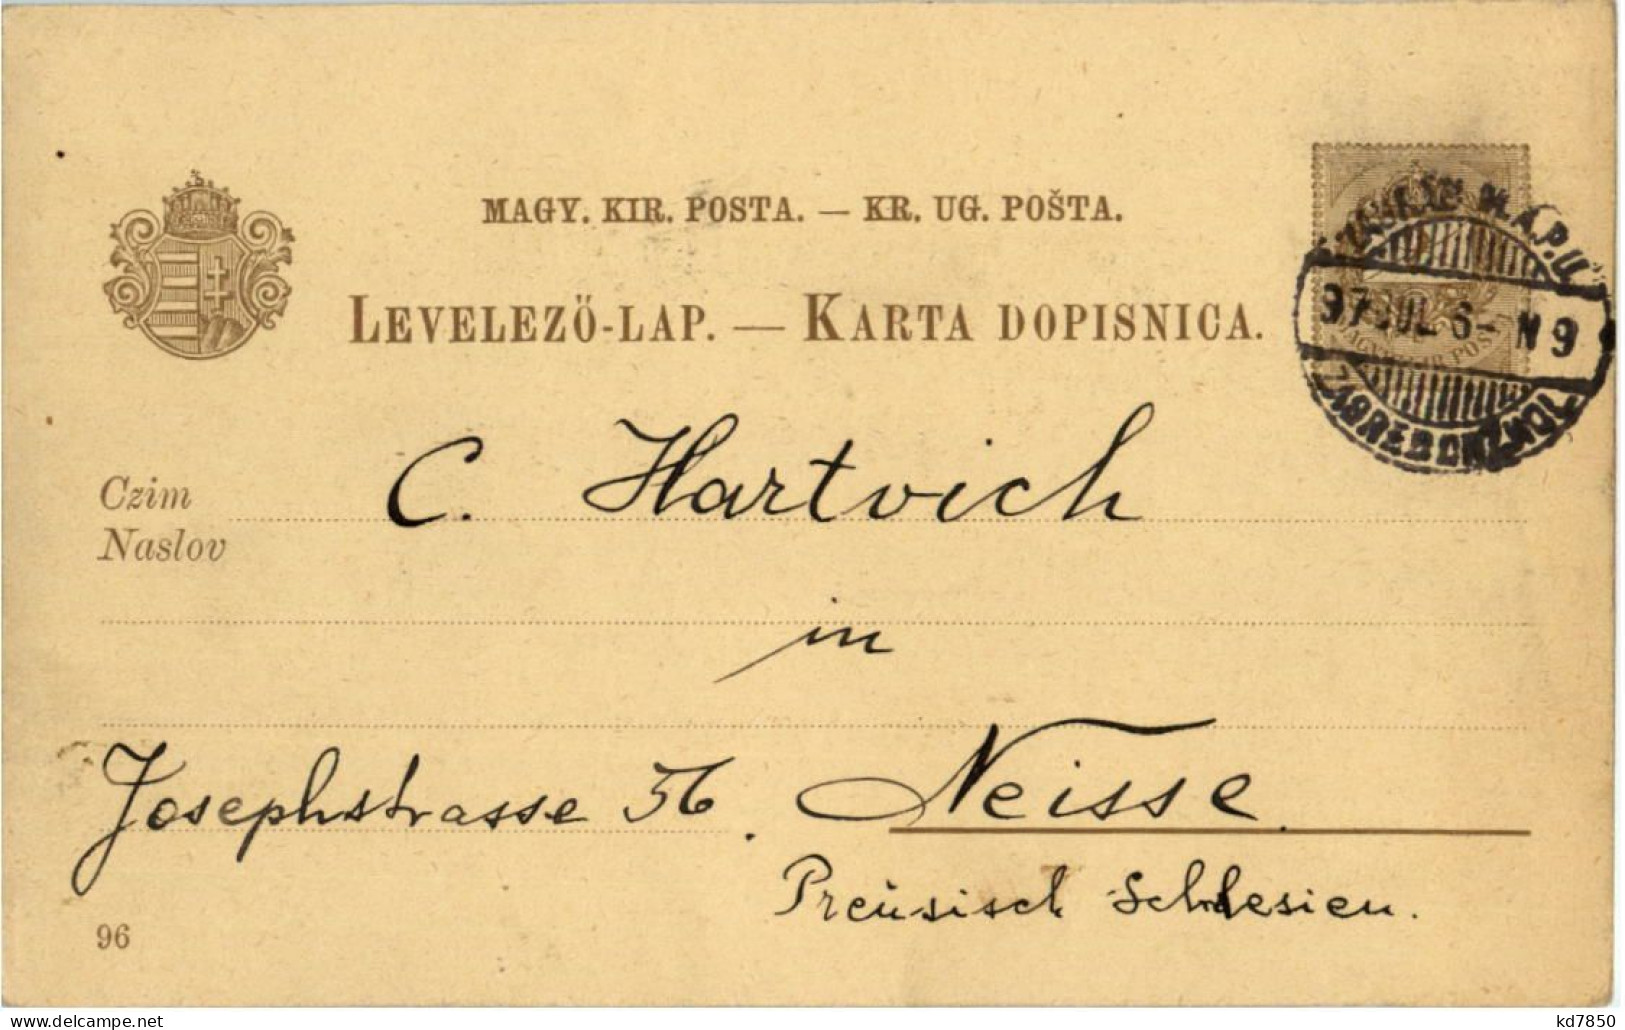 MAGY. KIR. POSTA. — KR. UG. POŠTA.
LEVELEZŐ-LAP. — KARTA DOPISNICA.
97 JUL 6- N9
Czim
Naslov
C. Hartvich
in
Josephstrasse 56. Neisse.
Preüsisch Schlesien.
96
www.delcampe.net
kd7850